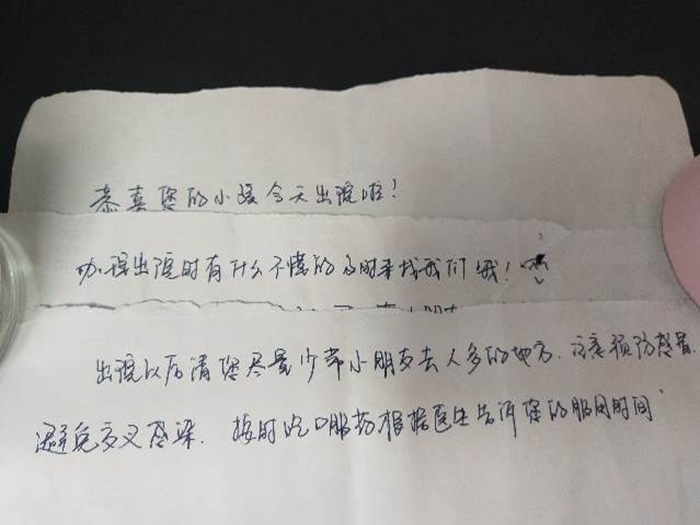 恭喜您的小孩今天出院啦!
办理出院时有什么不懂的及时来找我们哦!
出院以后请您尽量少带小朋友去人多的地方.注意预防感冒.
避免交叉感染.按时吃口服药根据医生告诉您的服用时间